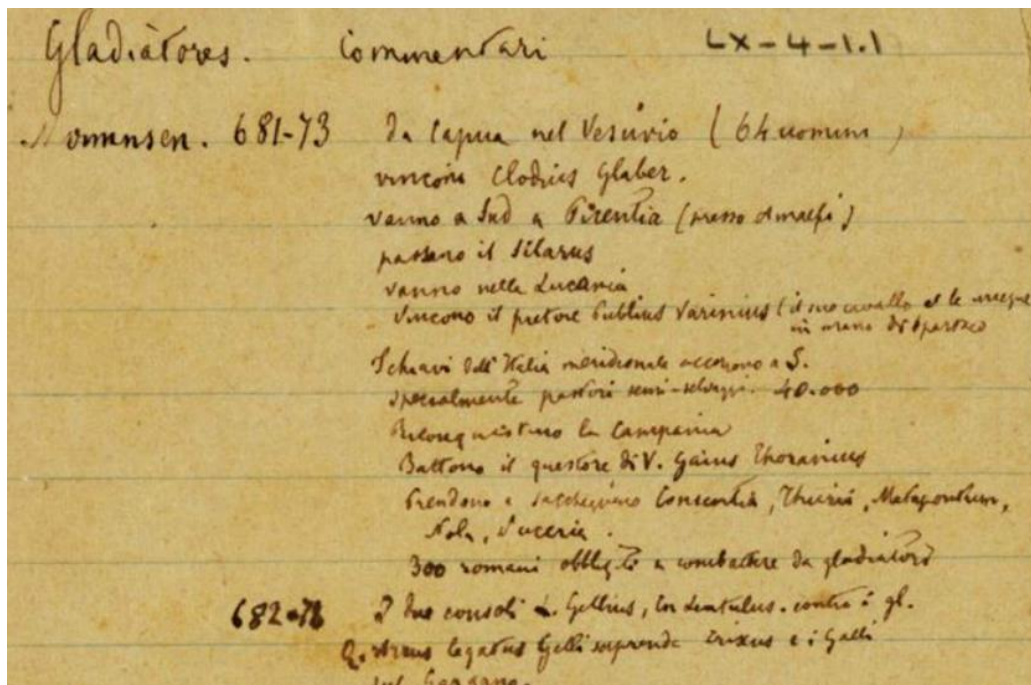 Gladiàtores. Commentari LX-4-1.1
Mommsen. 681-73 da Capua nel Vesuvio (64 uomini)
vincono Clodius Glaber.
vanno a Sud a Picentia (presso Amalfi)
passano il Silarus
vanno nella Lucania
vincono il pretore Publius Varinius (il suo cavallo e le insegne
in mano di Spartaco
Schiavi dell'Italia meridionale accorrono a S.
specialmente pastori semi-selvaggi. 40.000
Riconquistano la Campania
Battono il questore di V. Gaius Thoranius
Prendono e saccheggiano Consentia, Thurii, Metapontum,
Nola, Nuceria.
300 romani obbligati a combattere da gladiatori
682-72 I due consoli L. Gellius, Cn Lentulus. contro i gl.
Q. Arrius legatus Gelli sorprende Crixus e i Galli
sul Gargano.